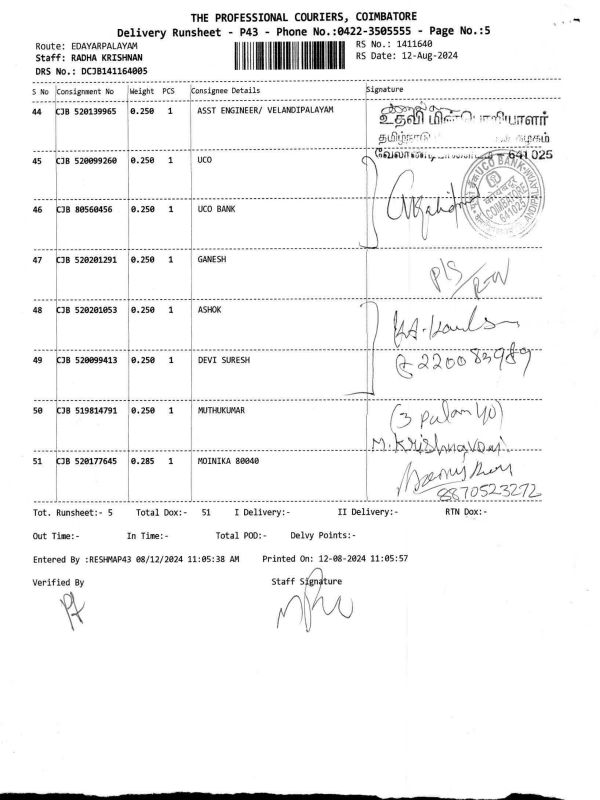 THE PROFESSIONAL COURIERS, COIMBATORE
Delivery Runsheet - P43 - Phone No.:0422-3505555 - Page No.:5
Route: EDAYARPALAYAM
RS No.: 1411640
Staff: RADHA KRISHNAN
RS Date: 12-Aug-2024
DRS No.: DCJB141164005
S No Consignment No Weight PCS Consignee Details Signature
44 CJB 520139965 0.250 1 ASST ENGINEER/ VELANDIPALAYAM
உதவி மின்பொறியாளர்
தமிழ்நாடு கழகம்
641 025
45 CJB 520099260 0.250 1 UCO
UCO BANK
COIMBATORE
641025
46 CJB 80560456 0.250 1 UCO BANK
47 CJB 520201291 0.250 1 GANESH
48 CJB 520201053 0.250 1 ASHOK
49 CJB 520099413 0.250 1 DEVI SURESH
50 CJB 519814791 0.250 1 MUTHUKUMAR
M. Krishnaveni
51 CJB 520177645 0.285 1 MOINIKA 80040
8870523272
Tot. Runsheet:- 5 Total Dox:- 51 I Delivery:- II Delivery:- RTN Dox:-
Out Time:- In Time:- Total POD:- Delvy Points:-
Entered By :RESHMAP43 08/12/2024 11:05:38 AM Printed On: 12-08-2024 11:05:57
Verified By Staff Signature